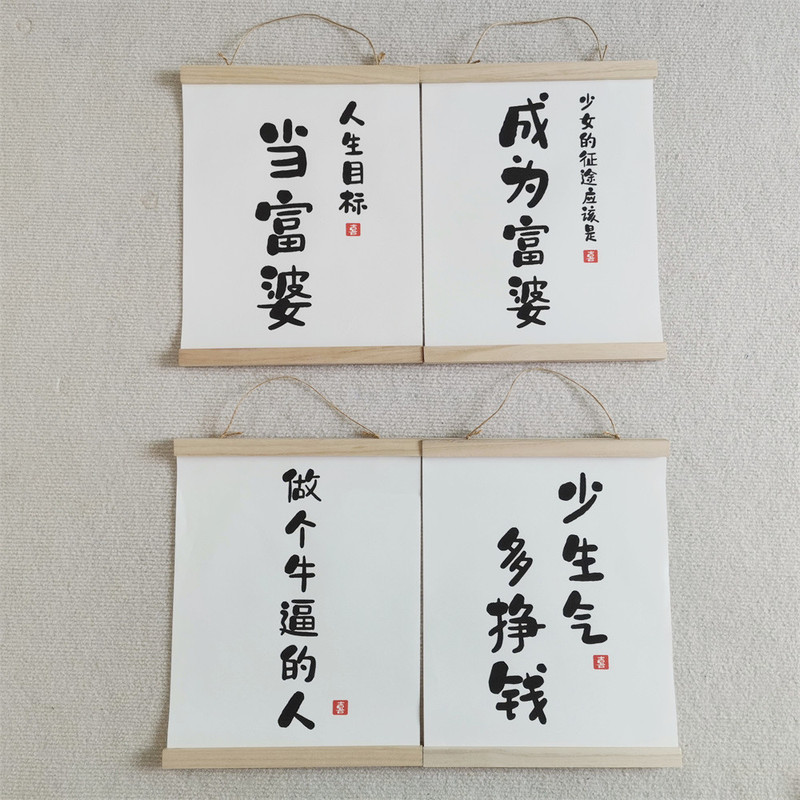 人生目标
当富婆
喜
少女的征途应该是
成为富婆
喜
做个牛逼的人
喜
少生气
多挣钱
喜